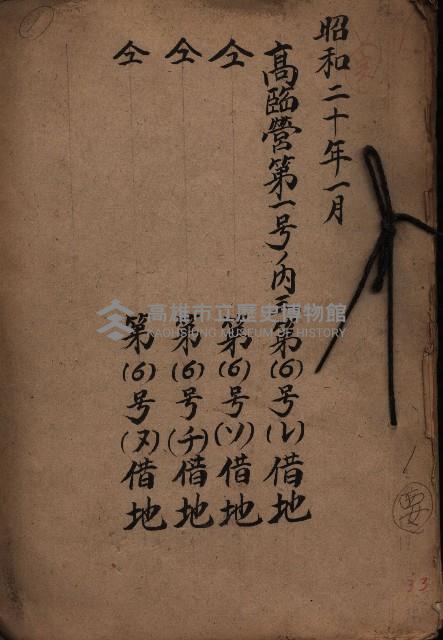 昭和二十年一月
高臨営第一号ノ内三第(6)号(ル)借地
仝 第(6)号(ソ)借地
仝 第(6)号(チ)借地
仝 第(6)号(ヌ)借地
高雄市立歷史博物館
KAOHSIUNG MUSEUM OF HISTORY
要
33